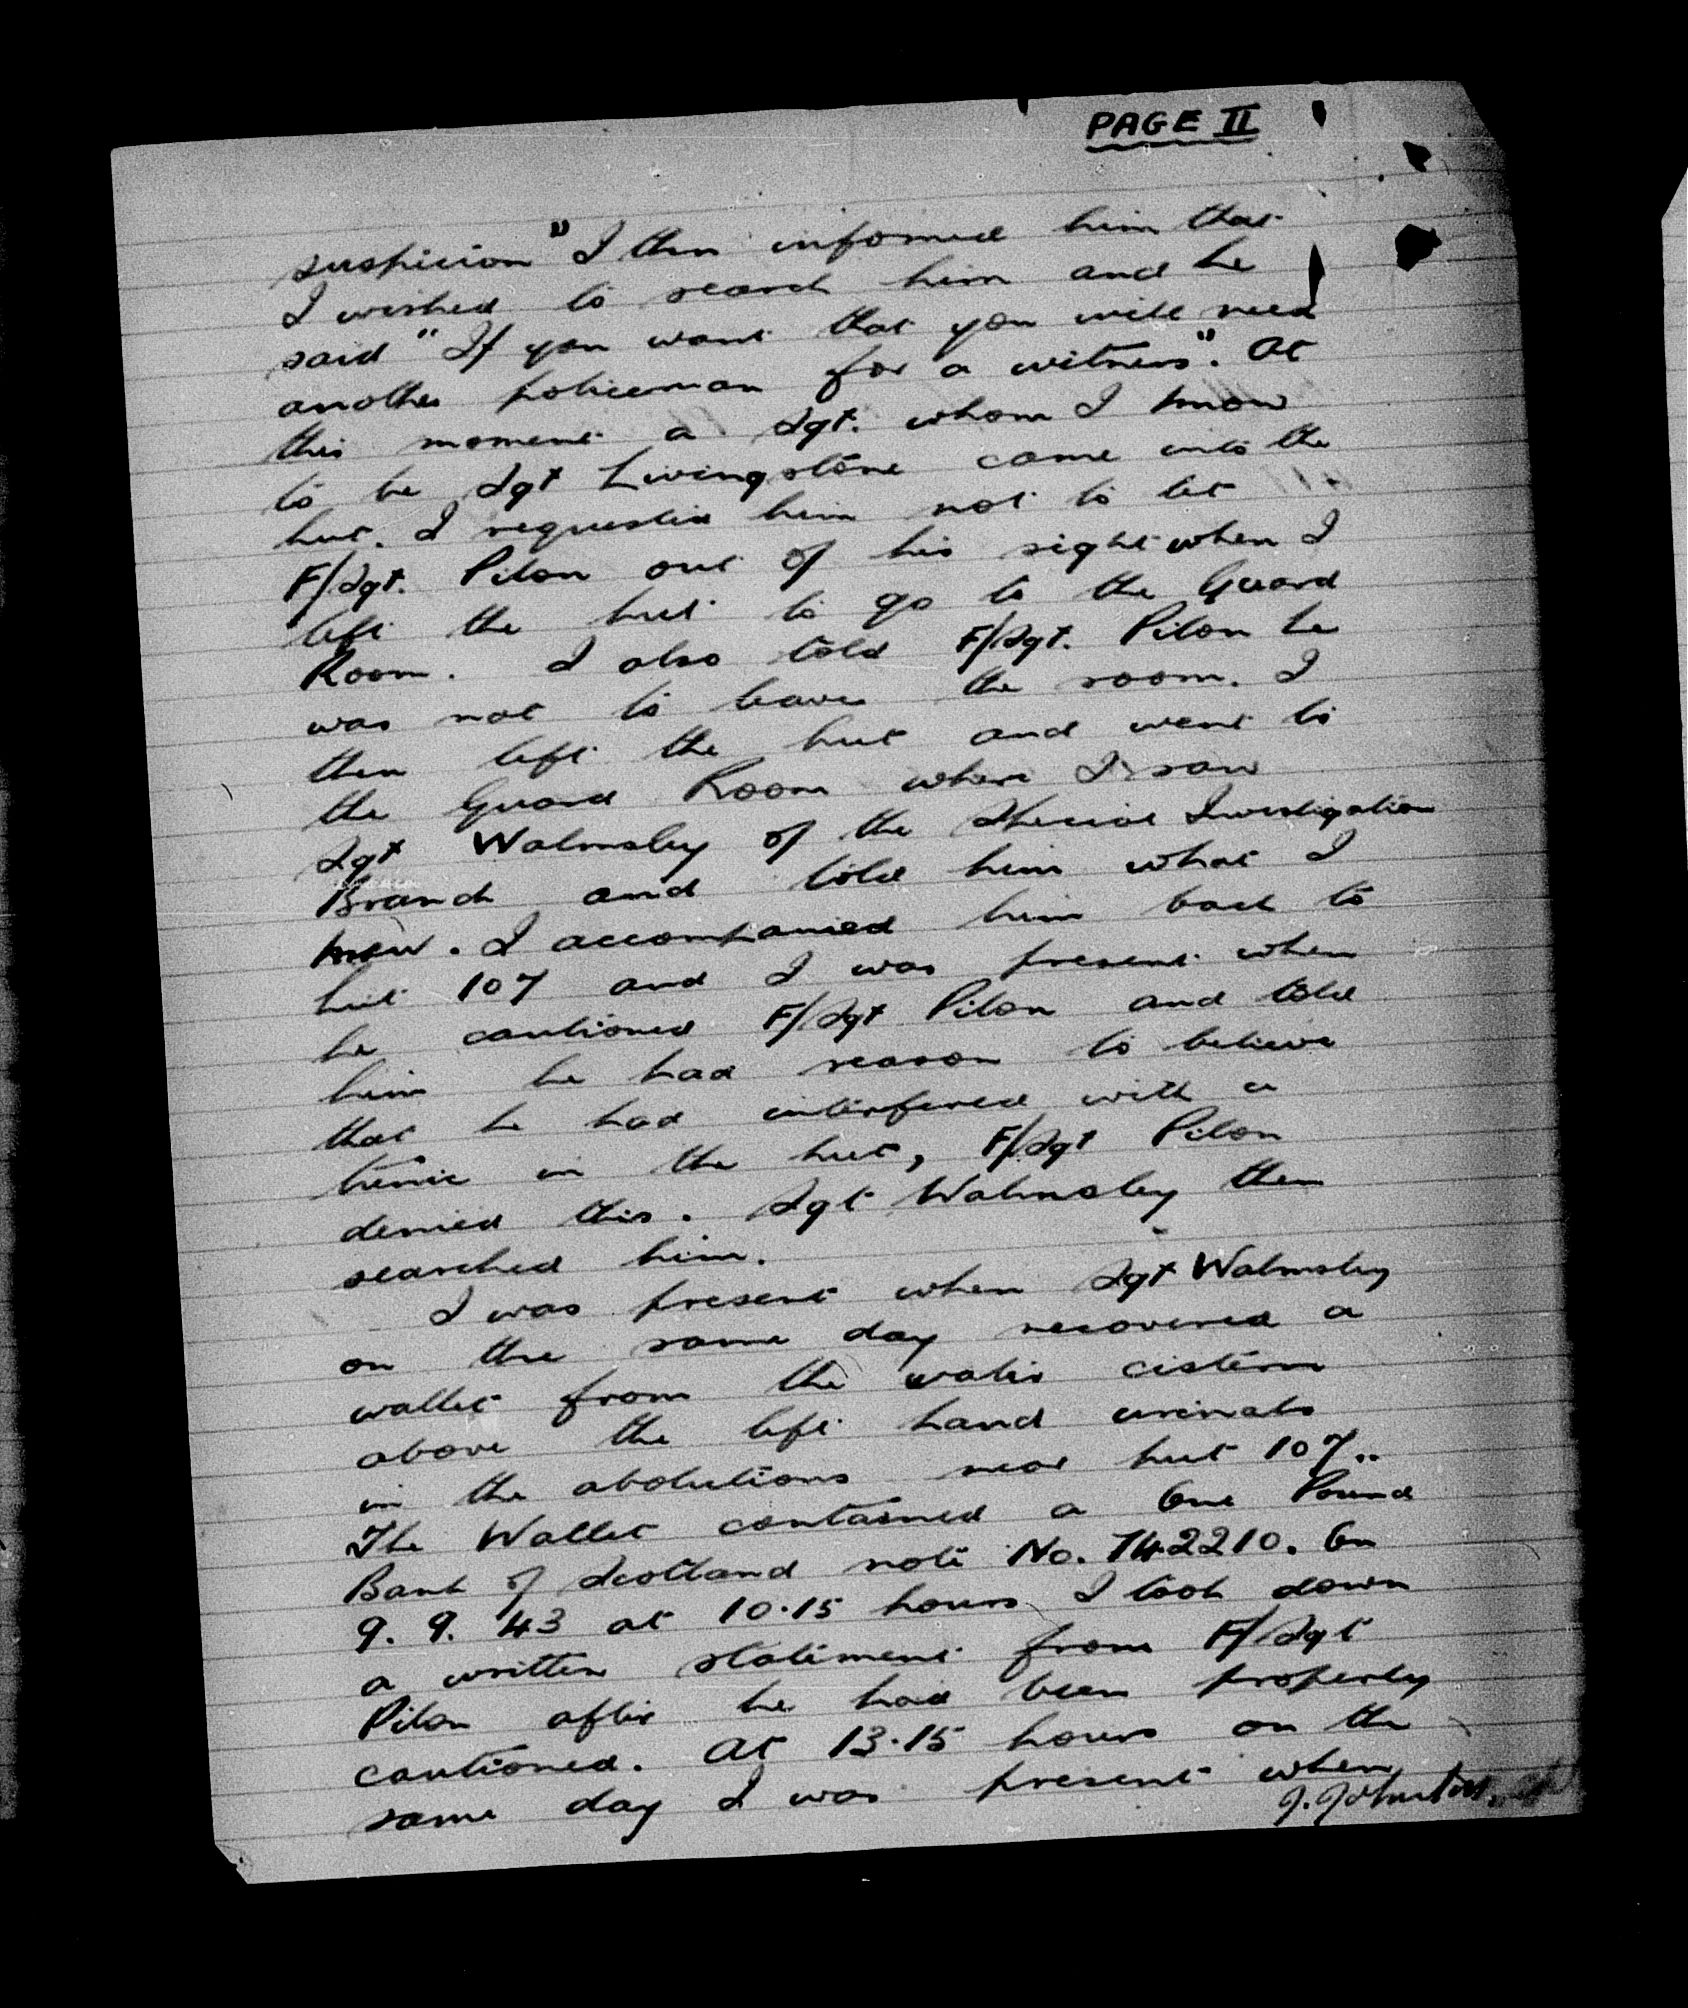 PAGE II
suspicion" I then informed him that
I wished to search him and he
said "If you want that you will need
another policeman for a witness". At
this moment a Sgt. whom I know
to be Sgt Livingstone came into the
hut. I requested him not to let
F/Sgt. Pilon out of his sight when I
left the hut to go to the Guard
Room. I also told F/Sgt. Pilon he
was not to leave the room. I
then left the hut and went to
the Guard Room where I saw
Sgt Walmsley of the Special Investigation
Branch and told him what I
knew. I accompanied him back to
hut 107 and I was present when
he cautioned F/Sgt Pilon and told
him he had reason to believe
that he had interfered with a
tunic in the hut, F/Sgt Pilon
denied this. Sgt Walmsley then
searched him.
I was present when Sgt Walmsley
on the same day recovered a
wallet from the water cistern
above the left hand urinals
in the abolutions near hut 107..
The Wallet contained a One Pound
Bank of Scotland note No. 742210. On
9. 9. 43 at 10.15 hours I took down
a written statement from F/Sgt
Pilon after he had been properly
cautioned. At 13.15 hours on the
same day I was present when
J. Johnston.